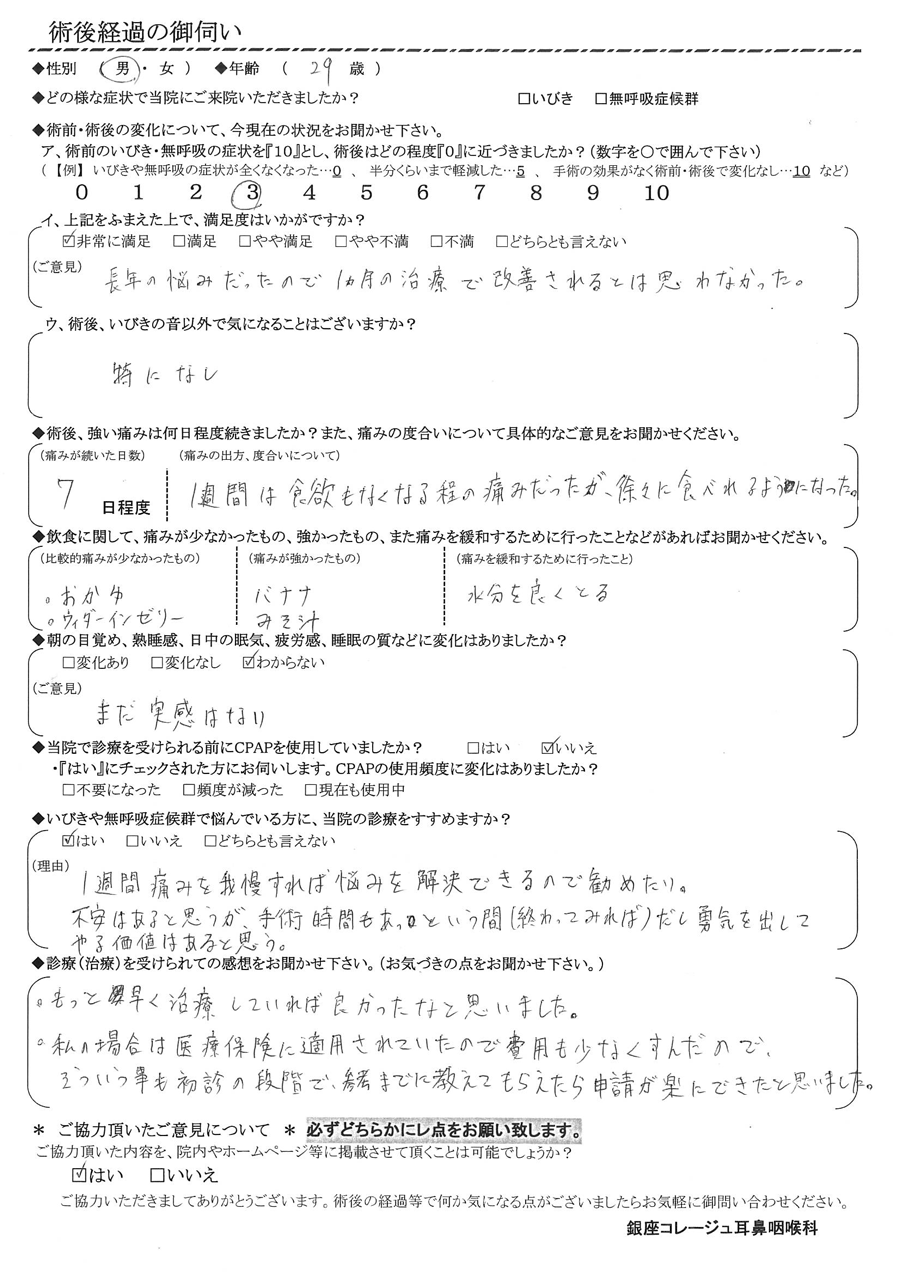 術後経過の御伺い
◆性別 （ 男 ・ 女 ） ◆年齢 （ 29 歳 ）
◆どの様な症状で当院にご来院いただきましたか？ □いびき □無呼吸症候群
◆術前・術後の変化について、今現在の状況をお聞かせ下さい。
ア、術前のいびき・無呼吸の症状を『10』とし、術後はどの程度『0』に近づきましたか？（数字を○で囲んで下さい）
（ 【例】 いびきや無呼吸の症状が全くなくなった…0 、 半分くらいまで軽減した…5 、 手術の効果がなく術前・術後で変化なし…10 など）
0 1 2 3 4 5 6 7 8 9 10
イ、上記をふまえた上で、満足度はいかがですか？
☑非常に満足 □満足 □やや満足 □やや不満 □不満 □どちらとも言えない
（ご意見） 長年の悩みだったので1ヵ月の治療で改善されるとは思わなかった。
ウ、術後、いびきの音以外で気になることはございますか？
特になし
◆術後、強い痛みは何日程度続きましたか？また、痛みの度合いについて具体的なご意見をお聞かせください。
（痛みが続いた日数） （痛みの出方、度合いについて）
7 日程度 1週間は食欲もなくなる程の痛みだったが、徐々に食べれるようになった。
◆飲食に関して、痛みが少なかったもの、強かったもの、また痛みを緩和するために行ったことなどがあればお聞かせください。
（比較的痛みが少なかったもの） （痛みが強かったもの） （痛みを緩和するために行ったこと）
。おかゆ バナナ 水分を良くとる
。ウィダーインゼリー みそ汁
◆朝の目覚め、熟睡感、日中の眠気、疲労感、睡眠の質などに変化はありましたか？
□変化あり □変化なし ☑わからない
（ご意見）
まだ実感はない
◆当院で診療を受けられる前にCPAPを使用していましたか？ □はい ☑いいえ
・『はい』にチェックされた方にお伺いします。CPAPの使用頻度に変化はありましたか？
□不要になった □頻度が減った □現在も使用中
◆いびきや無呼吸症候群で悩んでいる方に、当院の診療をすすめますか？
☑はい □いいえ □どちらとも言えない
（理由） 1週間痛みを我慢すれば悩みを解決できるので勧めたい。
不安はあると思うが、手術時間もあっという間（終わってみれば）だし勇気を出して
やる価値はあると思う。
◆診療（治療）を受けられての感想をお聞かせ下さい。（お気づきの点をお聞かせ下さい。）
。もっと早く治療していれば良かったなと思いました。
。私の場合は医療保険に適用されていたので費用も少なくすんだので、
そういう事も初診の段階で、参考までに教えてもらえたら申請が楽にできたと思いました。
＊ ご協力頂いたご意見について ＊ 必ずどちらかにレ点をお願い致します。
ご協力頂いた内容を、院内やホームページ等に掲載させて頂くことは可能でしょうか？
☑はい □いいえ
ご協力いただきましてありがとうございます。術後の経過等で何か気になる点がございましたらお気軽に御問い合わせください。
銀座コレージュ耳鼻咽喉科